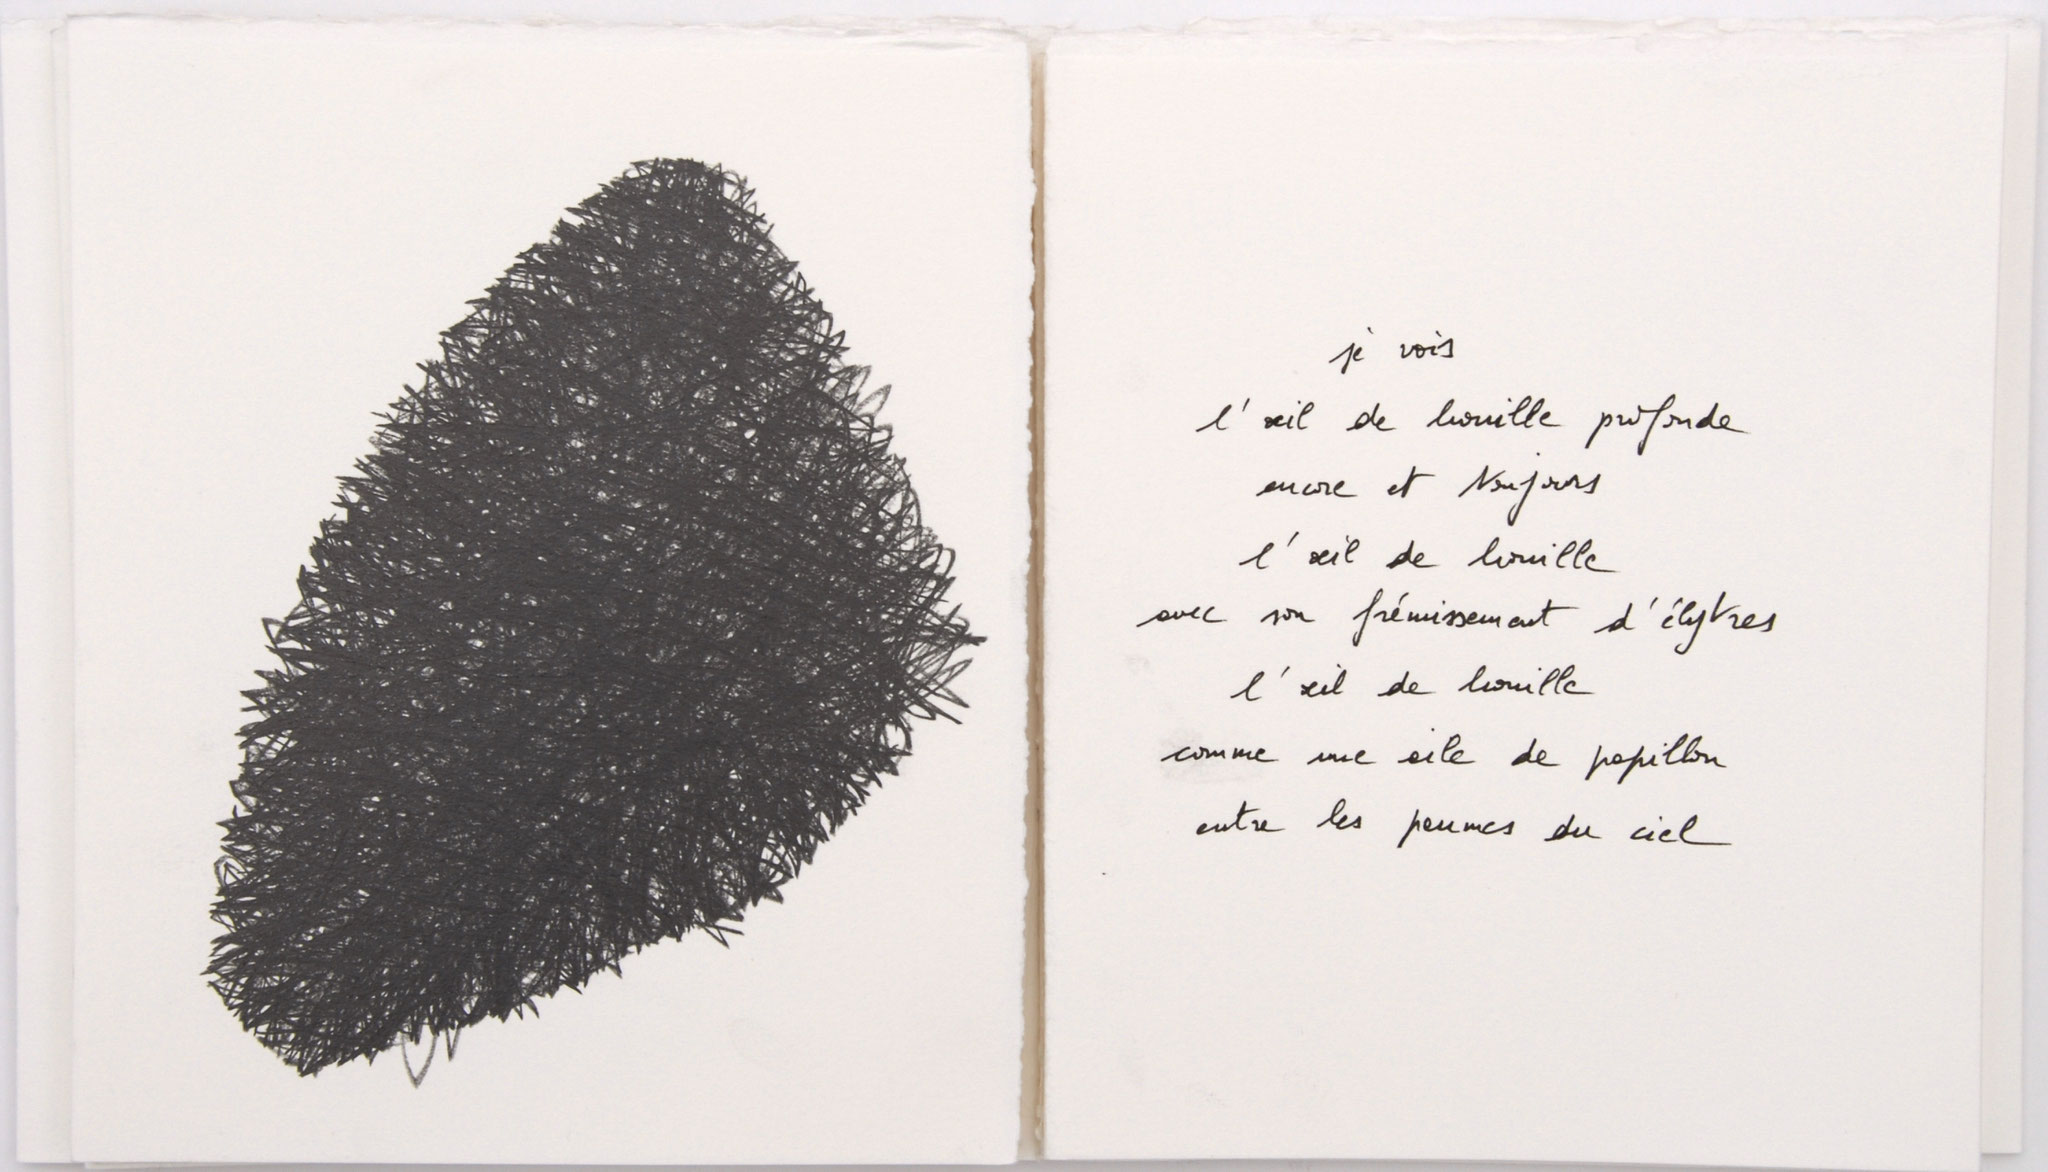 je vois
l'œil de houille profonde
encore et toujours
l'œil de houille
avec son frémissement d'élytres
l'œil de houille
comme une aile de papillon
entre les paumes du ciel